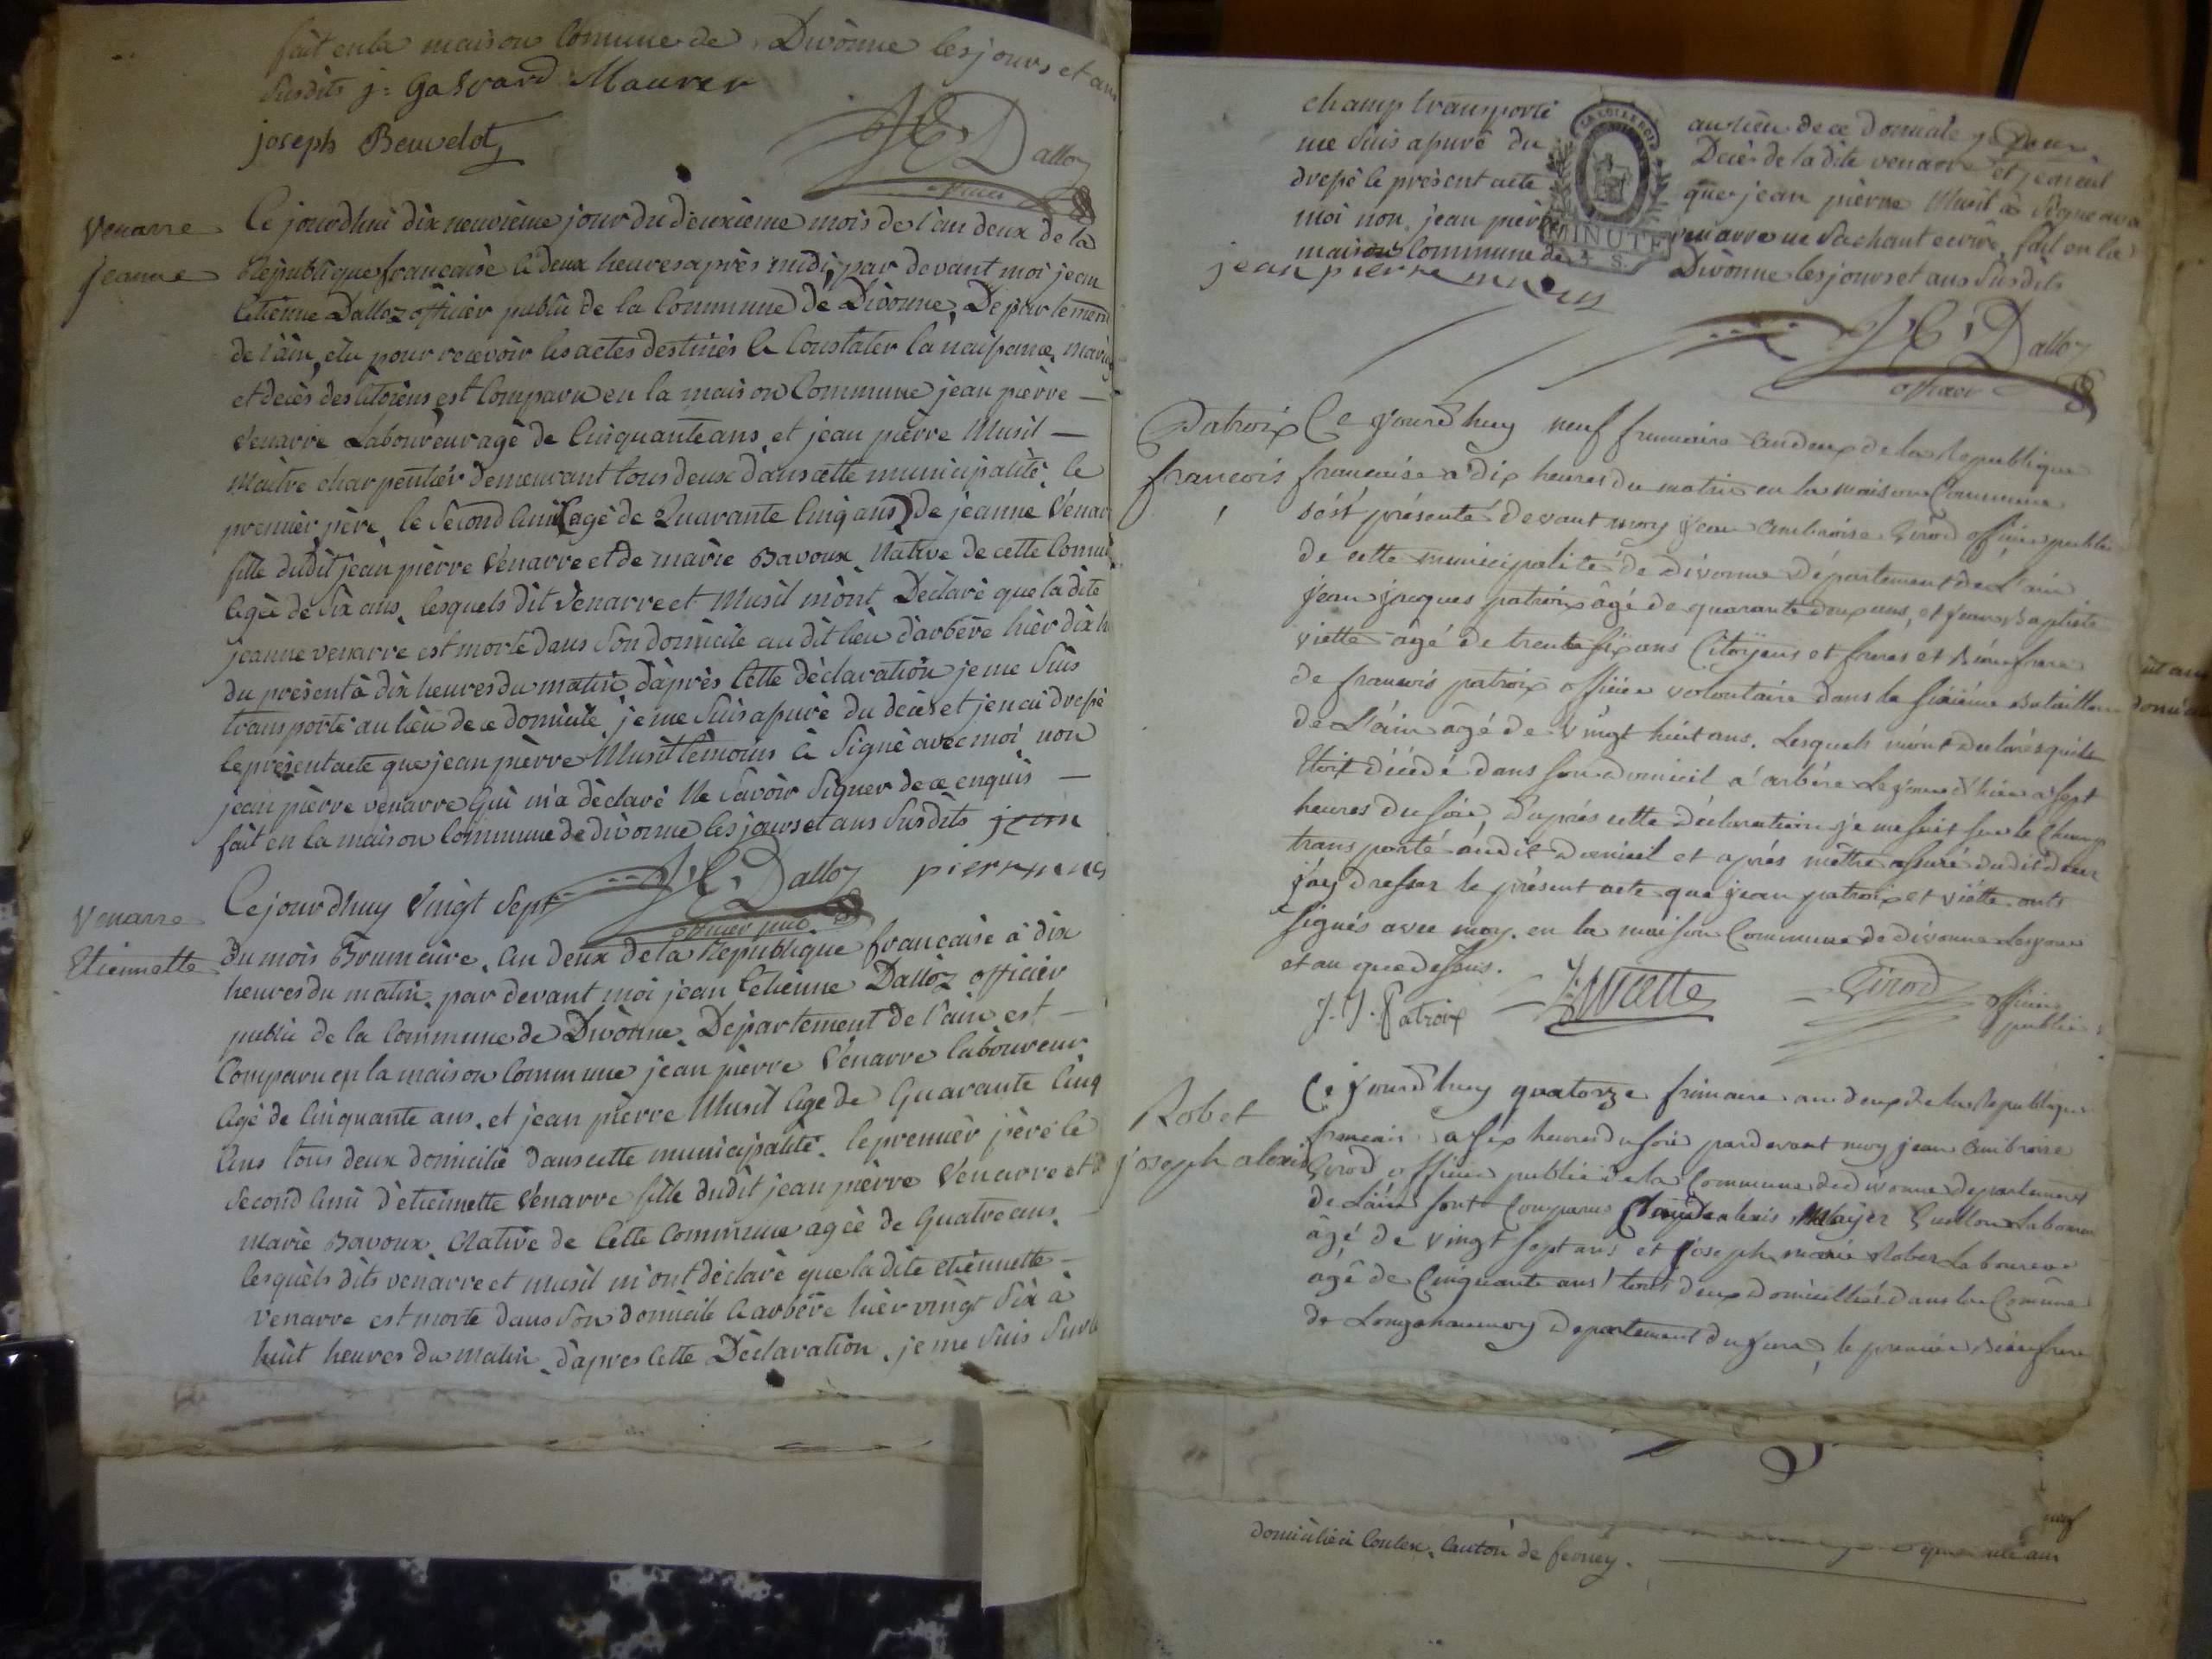 fait en la maison Comune de Divonne les jours et ans
susdits j: Gaspard Maurer
joseph Benvelot
JE Dalloz
officier
Venarre
jeanne
Ce jourdhui dix neuvième jour du deuxième mois de l'an deux de la
République française à deux heures après midi, par devant moi jean
Etienne Dalloz officier public de la Commune de Divonne, Departement
de l'ain, élu pour recevoir les actes destinés à Constater la naissance, mariage
et decès des citoïens est Comparu en la maison Commune jean pierre
Venarre Laboureur agé de Cinquante ans, et jean pierre Musil
Maitre charpentier demeurant tous deux dans cette municipalité, le
premier père, le second ami (agé de Quarante Cinq ans) de jeanne Venar
fille dudit jean pierre Venarre et de marie Bavoux, Native de cette Comu
agée de six ans, lesquels dit Venarre et Musil m'ont Déclaré que la dite
jeanne venarre est morte dans son domicile au dit lieu d'arbère hier dix h
du present à dix heures du matin, d'après Cette déclaration je me suis
transporté au lieu de ce domicile, je me suis assuré du décès et j'en ai dressé
le présent acte que jean pierre Musil témoins a signé avec moi non
jean pierre venarre Qui m'a déclaré Ne savoir signer de ce enquis
fait en la maison Commune de divonne les jours et ans susdits jean
pierre mus
JE Dalloz
officier public
Venarre
Etiennette
Ce jourdhuy Vingt sept
du mois Brumaire, an deux de la République française à dix
heures du matin, par devant moi jean Etienne Dalloz officier
public de la Commune de Divonne, Departement de l'ain est
Comparu en la maison Commune jean pierre Venarre laboureur
agé de Cinquante ans, et jean pierre Musil agé de Quarante Cinq
ans tous deux domicilié dans cette municipalité, le premier père le
second ami d'etiennette Venarre fille dudit jean pierre Venarre et d
marie Bavoux, Native de Cette Commune agée de Quatre ans,
lesquels dits venarre et musil m'ont déclaré que la dite etiennette
venarre est morte dans son domicile à arbère hier vingt six à
huit heures du matin, d'apres Cette Déclaration, je me suis sur le
champ transporté au lieu de ce domicile
me suis assuré du Decès de la dite venarre et j'en ai
dressé le présent acte que jean pierre Musil a signé avec
moi non jean pierre venarre ne sachant ecrire, fait en la
maison Commune de Divonne les jours et ans susdits
LA LOI LE ROI
MINUTE
jean pierre musil
JE Dalloz
officier
Patroix
françois
Ce jourdhuy neuf frimaire an deux de la Republique
francaise à dix heures du matin en la maison Commune
s'est présenté devant moy jean ambroise Girod officier public
de cette municipalité de Divonne Département de L'ain
jean jacques patroix âgé de quarante deux ans, et jean Baptiste
viette âgé de trente six ans Citoyens et freres et Beau frere
de francois patroix officier volontaire dans le sixième Bataillon
de L'ain âgé de vingt huit ans. Lesquels m'ont declarés qu'ils
étoit décédé dans son domicil à arbére Le jour d'hier a sept
heures du soir, D'aprés cette Déclaration je me suis sur le Champ
transporté audit domicil et aprés m'être assuré dudit deces
j'ay dresser le présent acte que jean patroix et viette onts
signés avec moy. en la maison Commune de divonne Les jour
et an que dessus.
J. J. Patroix
J B Viette
Girod
officier
public
Robet
joseph alexis
Ce jourdhuy quatorze frimaire an deux de la Republique
francais a six heures du soir pardevant moy jean ambroise
Girod officier public de la Commune de divonne departement
de L'ain sont Comparus Claude alexis Mayer Guillon Laboureur
âgé de vingt sept ans et joseph marie Robez Laboureur
agé de Cinquante ans touts deux domicilliés dans la Comune
de Longchaumoy Departement du jura, le premier Beau frere
domicilié à Coulex, Canton de ferney.